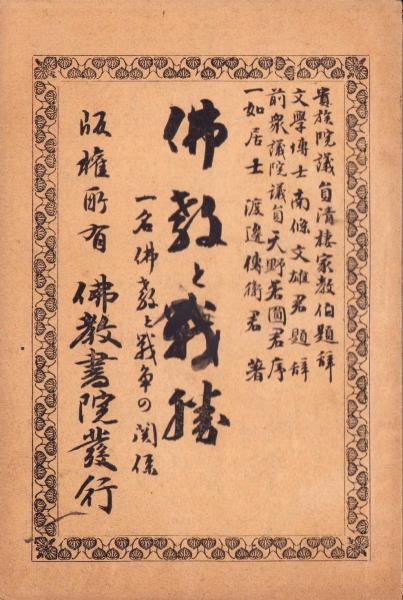 貴族院議員清棲家教伯題辞
文學博士南條文雄君題辞
前衆議院議員天野若圓君序
一如居士渡邊傳衛君著
佛教と戦勝
一名佛教と戦争の関係
版権所有 佛教書院發行